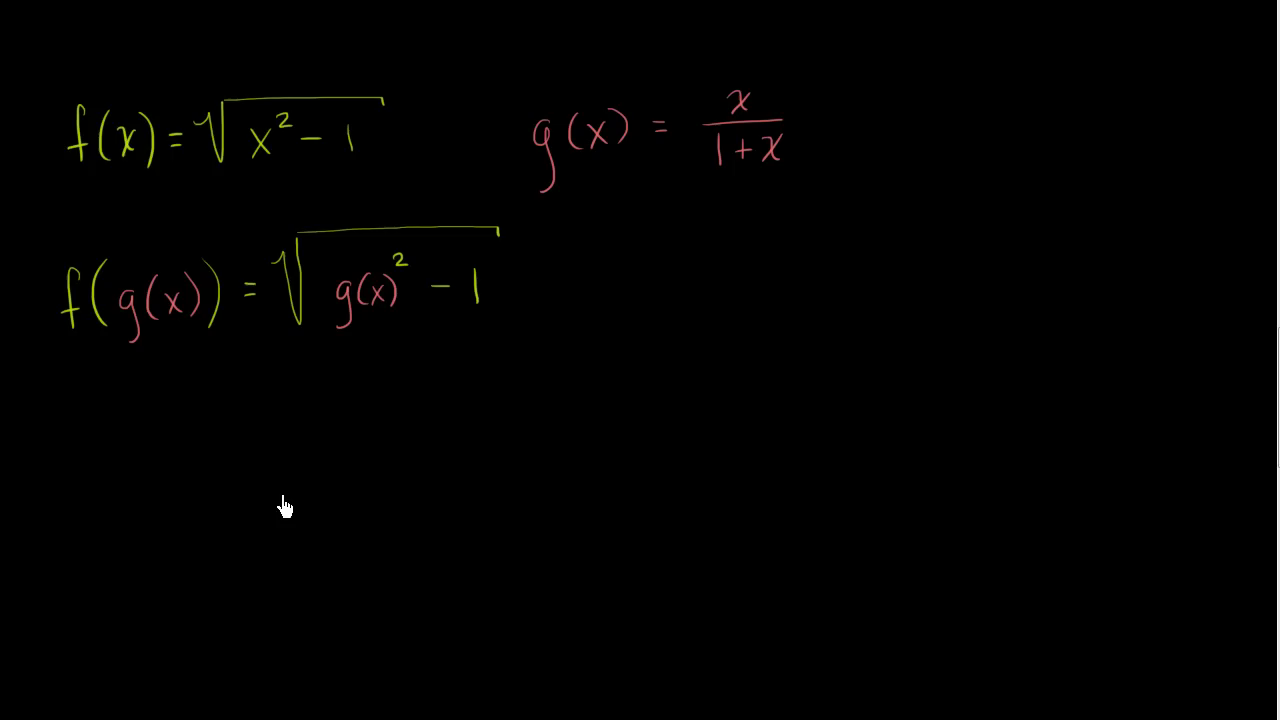 f(x) = √(x² - 1)    g(x) = x/(1 + x)
f(g(x)) = √(g(x)² - 1)